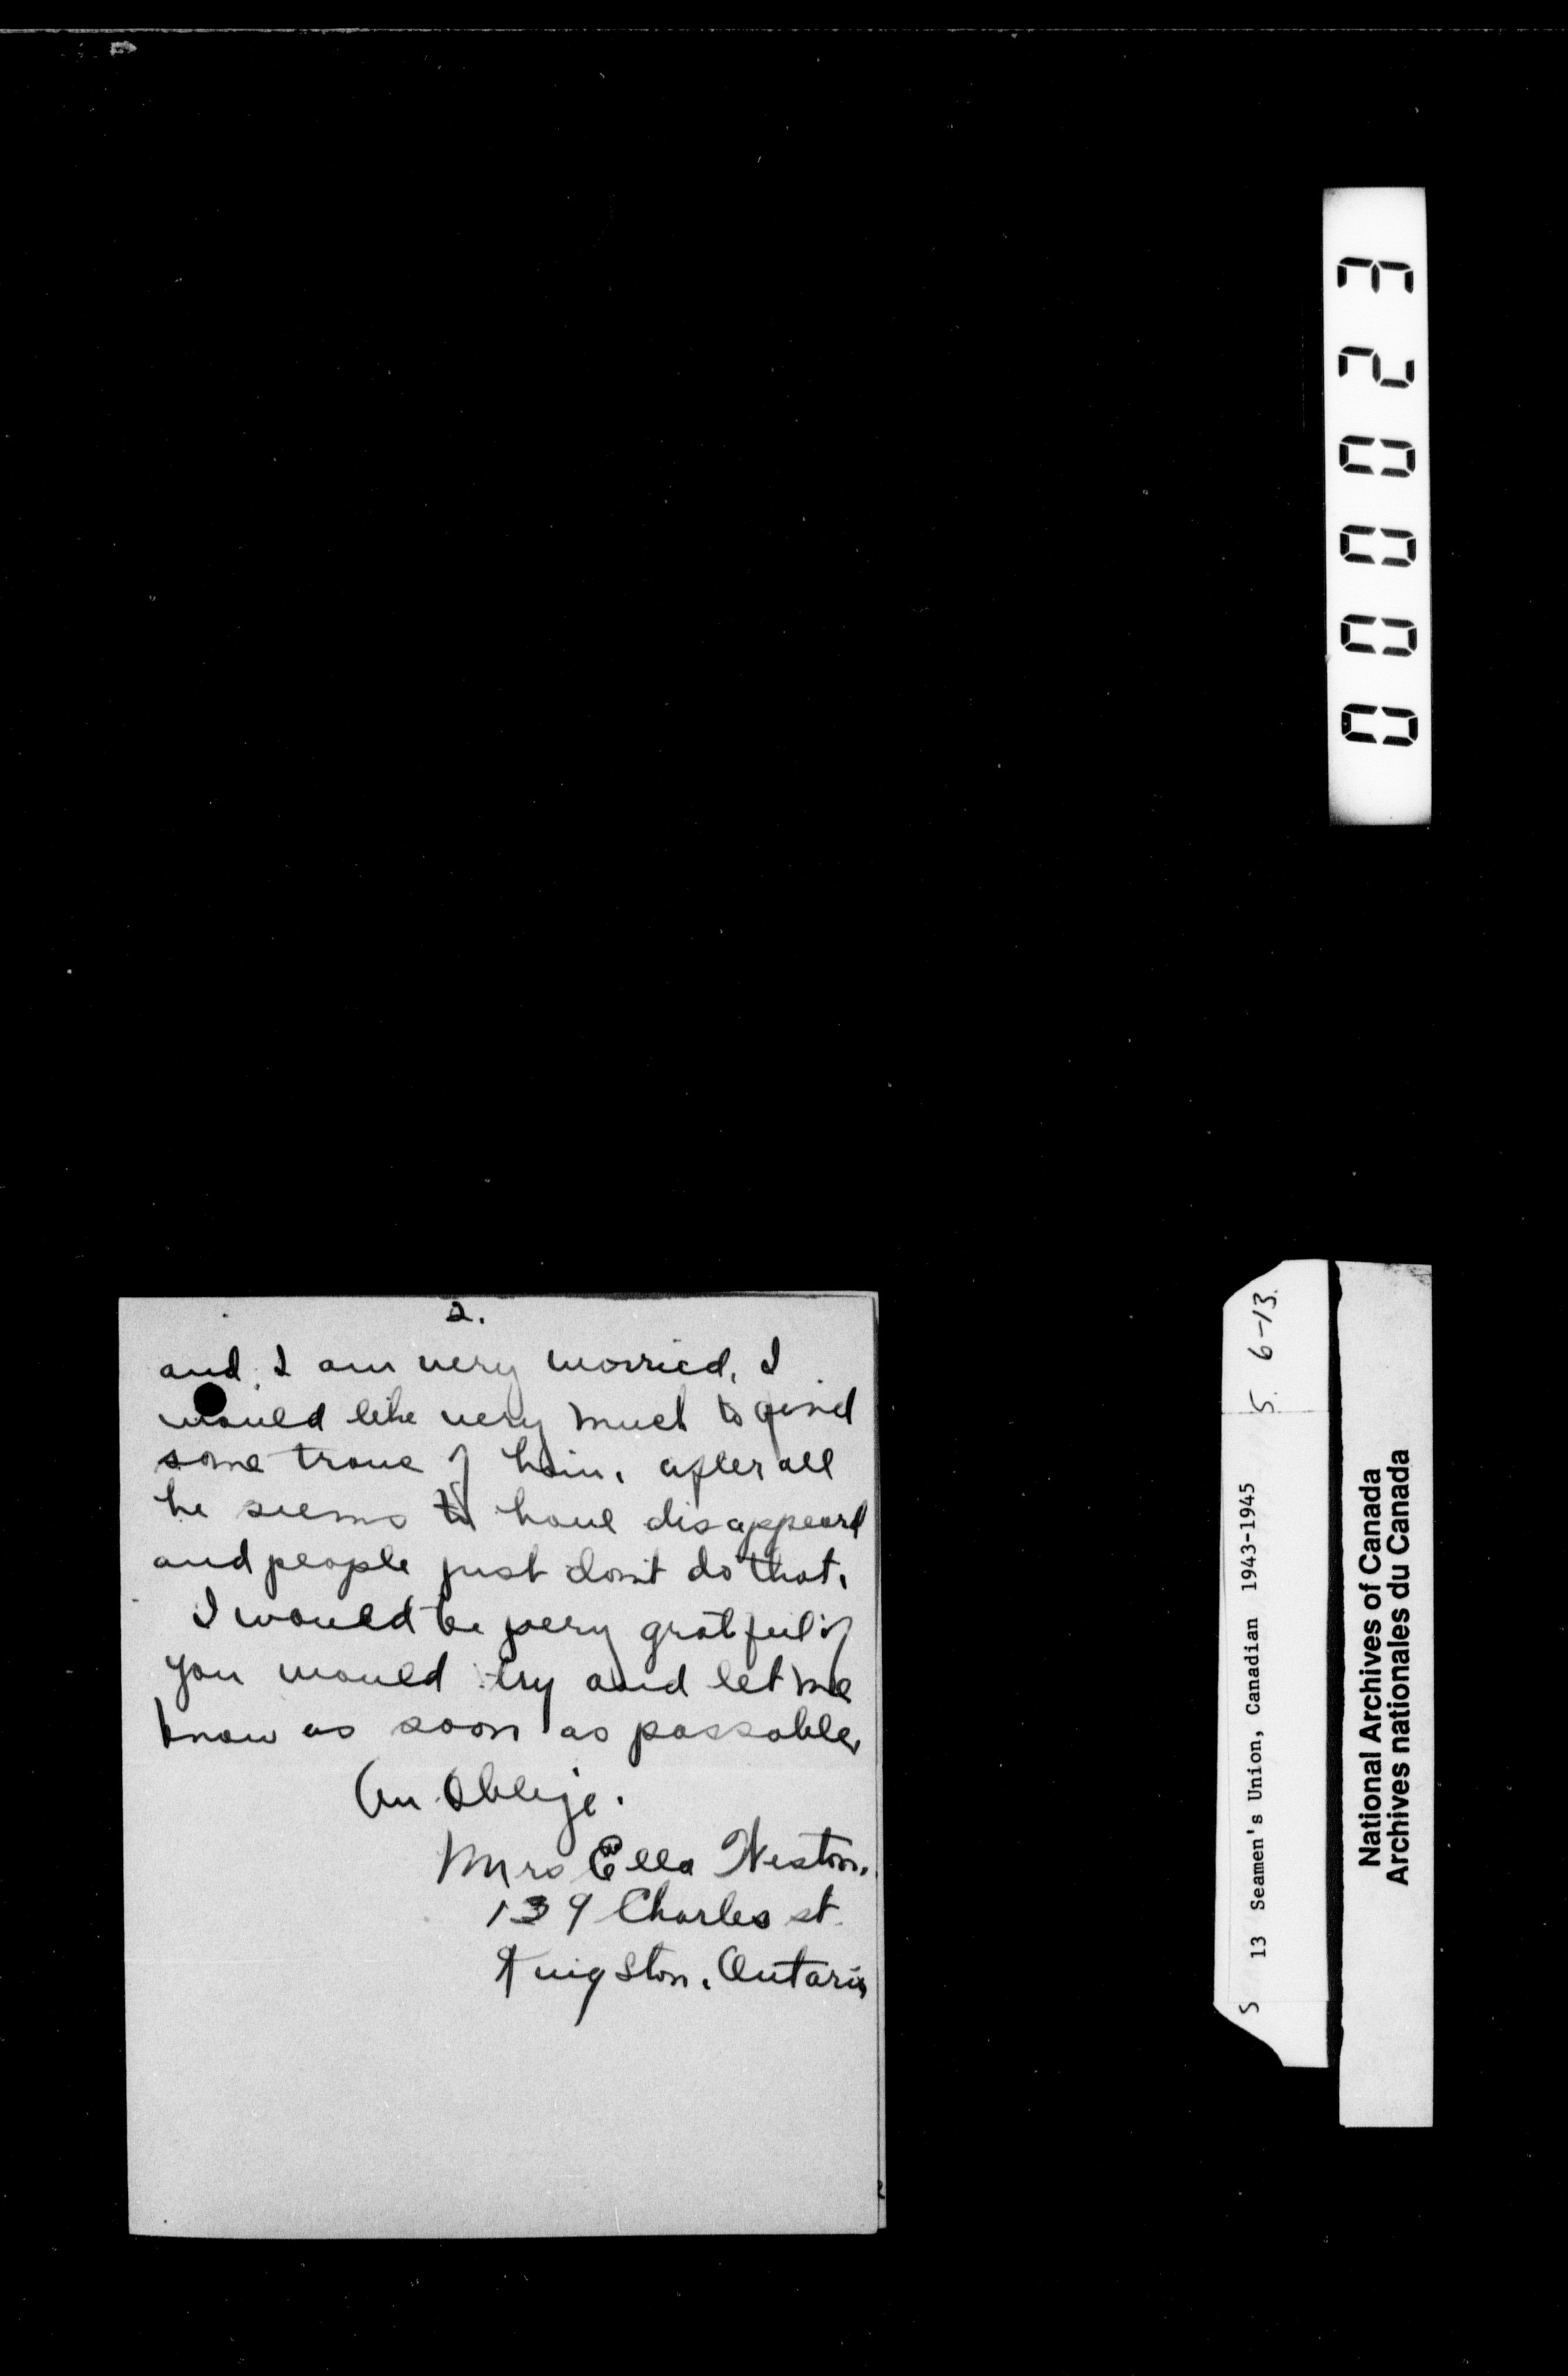 2.
and I am very worried, I
would like very much to find
some trace of him. after all
he seems to have disappeard
and people just don't do that.
I would be very gratful if
you would try and let me
know as soon as possable,
An Oblige.
Mrs Ella Weston.
139 Charles st.
Kingston. Ontario
000023
S 13 Seamen's Union, Canadian 1943-1945 5. 6-13.
National Archives of Canada
Archives nationales du Canada